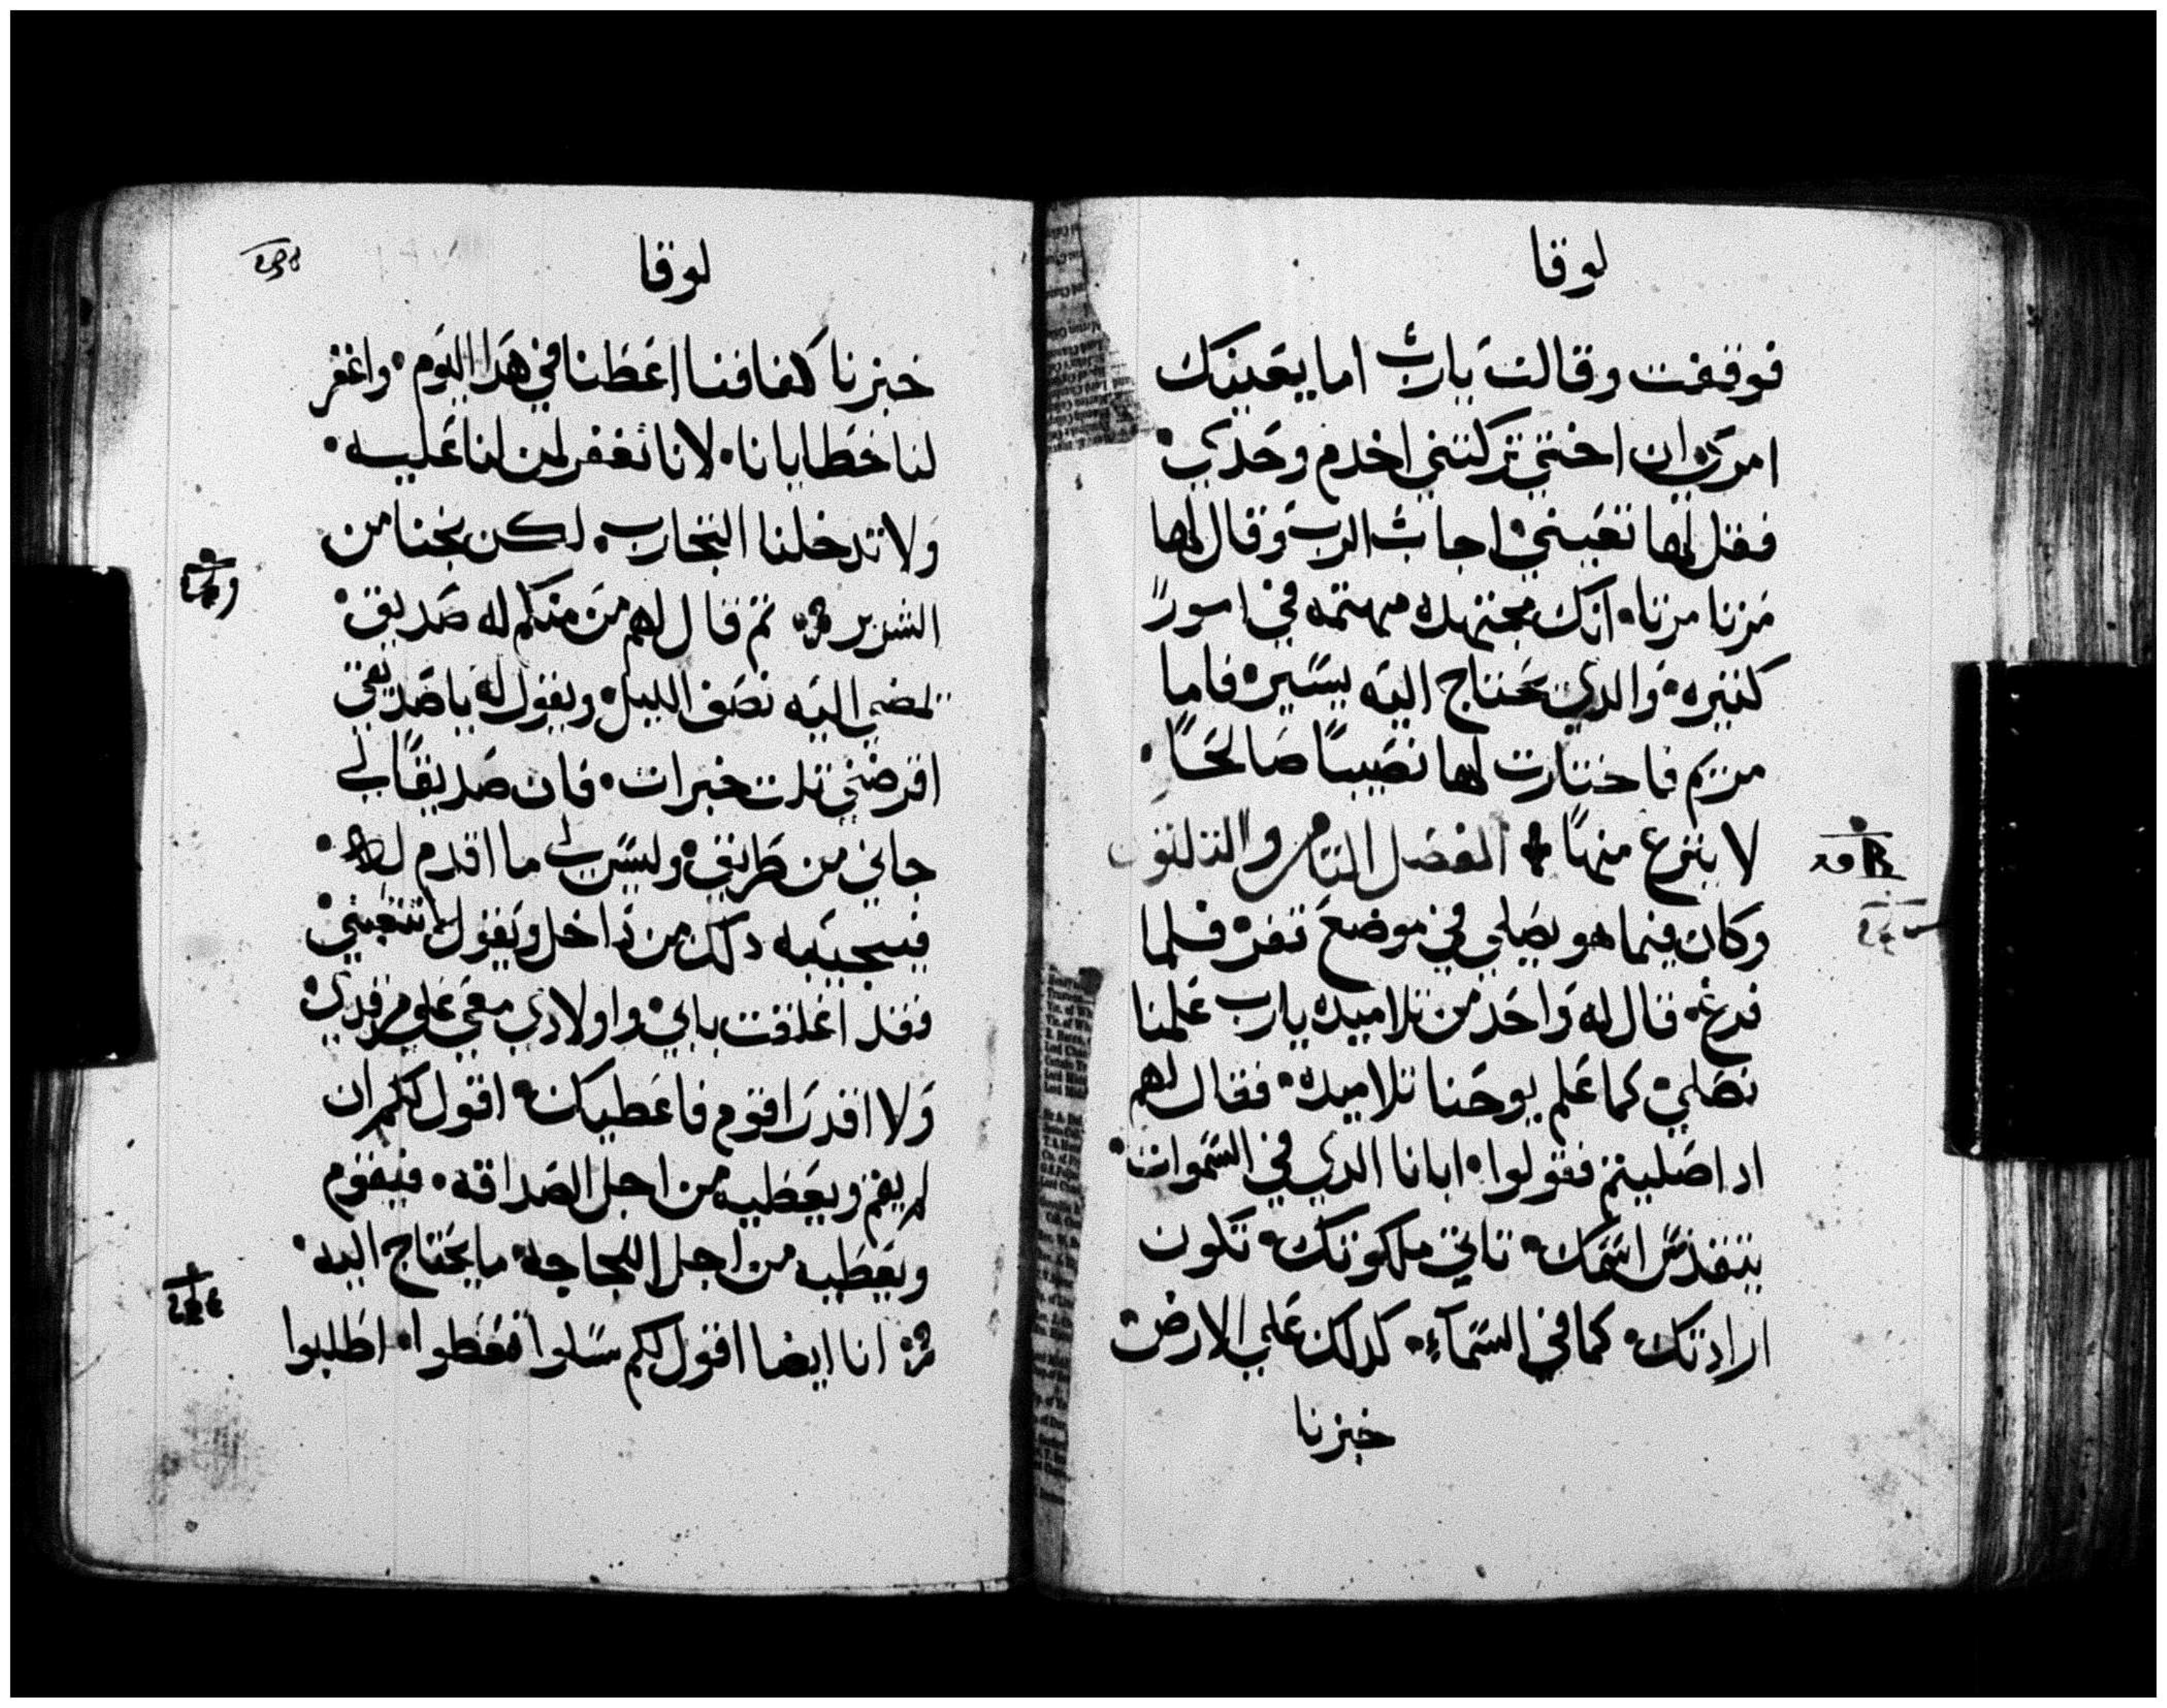 لوقا
فوقفت وقالت يارب اما يعينك
امري ان اختي تركتني اخدم وحدي
فقل لها تعينني اجاب الرب وقال لها
مرتا مرتا انك مجتهده مهتمه في امور
كتيره والدي يحتاج اليه يسير فاما
مريم فاختارت لها نصيبا صالحا
لا ينزع منها الفصل التامن والتلتون
وكان فيما هو يصلي في موضع قفر فلما
فرغ قال له واحد من تلاميده يارب علمنا
نصلي كما علم يوحنا تلاميده فقال لهم
ادا صليتم فقولوا ابانا الدي في السموات
يتقدس اسمك تاتي ملكوتك تكون
ارادتك كما في السماء كدلك على الارض
خبزنا
لوقا
خبزنا كفافنا اعطنا في هدا اليوم واغفر
لنا خطايانا لانا نغفر لمن لنا عليه
ولا تدخلنا التجارب لكن نجنا من
الشرير تم قال لهم من منكم له صديق
يمضي اليه نصف الليل ويقول له يا صديقي
اقرضني تلت خبزات فان صديقا لي
جاني من طريق وليس لي ما اقدم له
فيجيبه داك من داخل ويقول لا تتعبني
فقد اغلقت بابي واولادي معي على مرقدي
ولا اقدر اقوم فاعطيك اقول لكم ان
لم يقم ويعطيه من اجل الصداقه فيقوم
ويعطيه من اجل اللجاجه ما يحتاج اليه
انا ايضا اقول لكم سلوا تعطوا اطلبوا